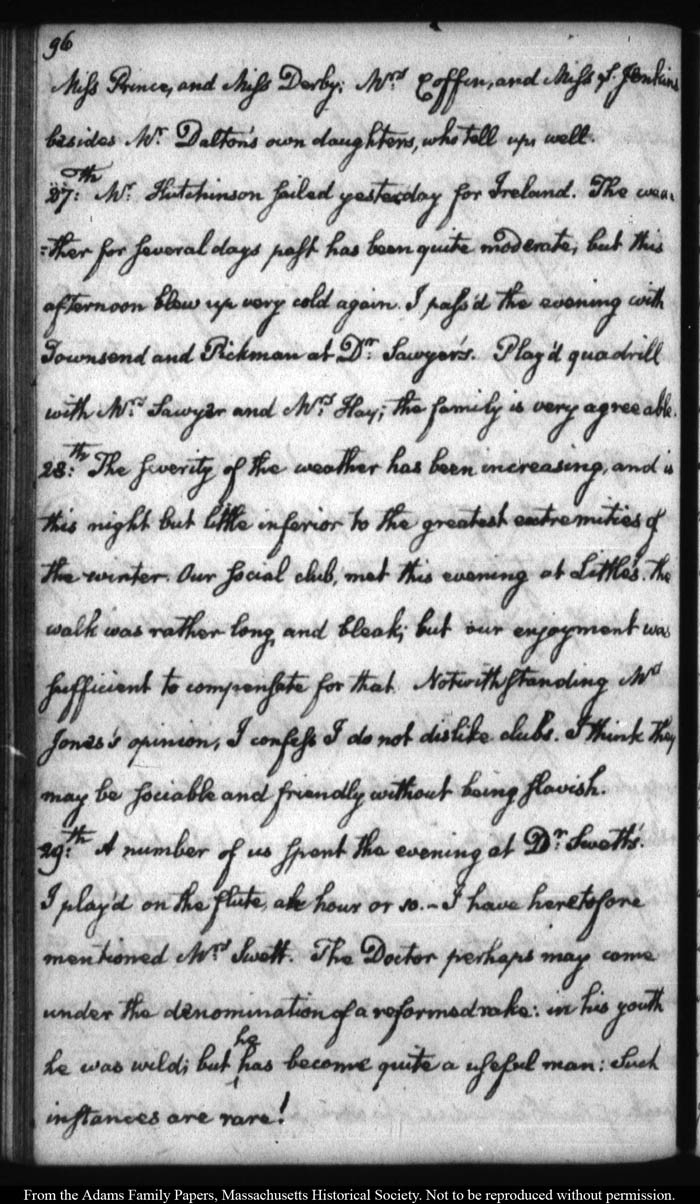 96
Miss Prince, and Miss Derby; Mrs Coffin, and Miss S. Jenkins
besides Mr Dalton's own daughters, who tell up well.
27:th Mr Hutchinson sailed yesterday for Ireland. The wea-
=ther for several days past has been quite moderate; but this
afternoon blew up very cold again. I pass'd the evening with
Townsend and Pickman at Dr Sawyer's. Play'd quadrill
with Mrs Sawyer and Mrs Hay; the family is very agreeable.
28:th The severity of the weather has been increasing, and is
this night but little inferior to the greatest extremities of
the winter. Our social club, met this evening at Little's. the
walk was rather long, and bleak; but our enjoyment was
sufficient to compensate for that. Notwithstanding Mrs
Jones's opinion, I confess I do not dislike clubs. I think they
may be sociable and friendly without being slavish.
29:th A number of us spent the evening at Dr Swett's.
I play'd on the flute, an hour or so. – I have heretofore
mentioned Mrs Swett. The Doctor perhaps may come
under the denomination of a reformed rake: in his youth
he was wild; but he has become quite a useful man: Such
instances are rare!
From the Adams Family Papers, Massachusetts Historical Society. Not to be reproduced without permission.